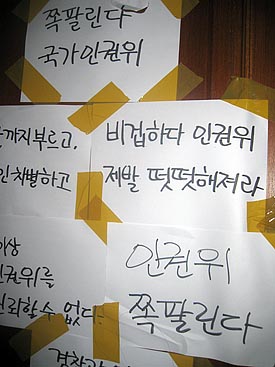 쪽팔린다
국가인권위
까지부르고,
인차별하고
비겁하다 인권위
제발 떳떳해져라
이상
인권위를
뢰할 수 없다.
인권위
쪽팔린다
경찰과